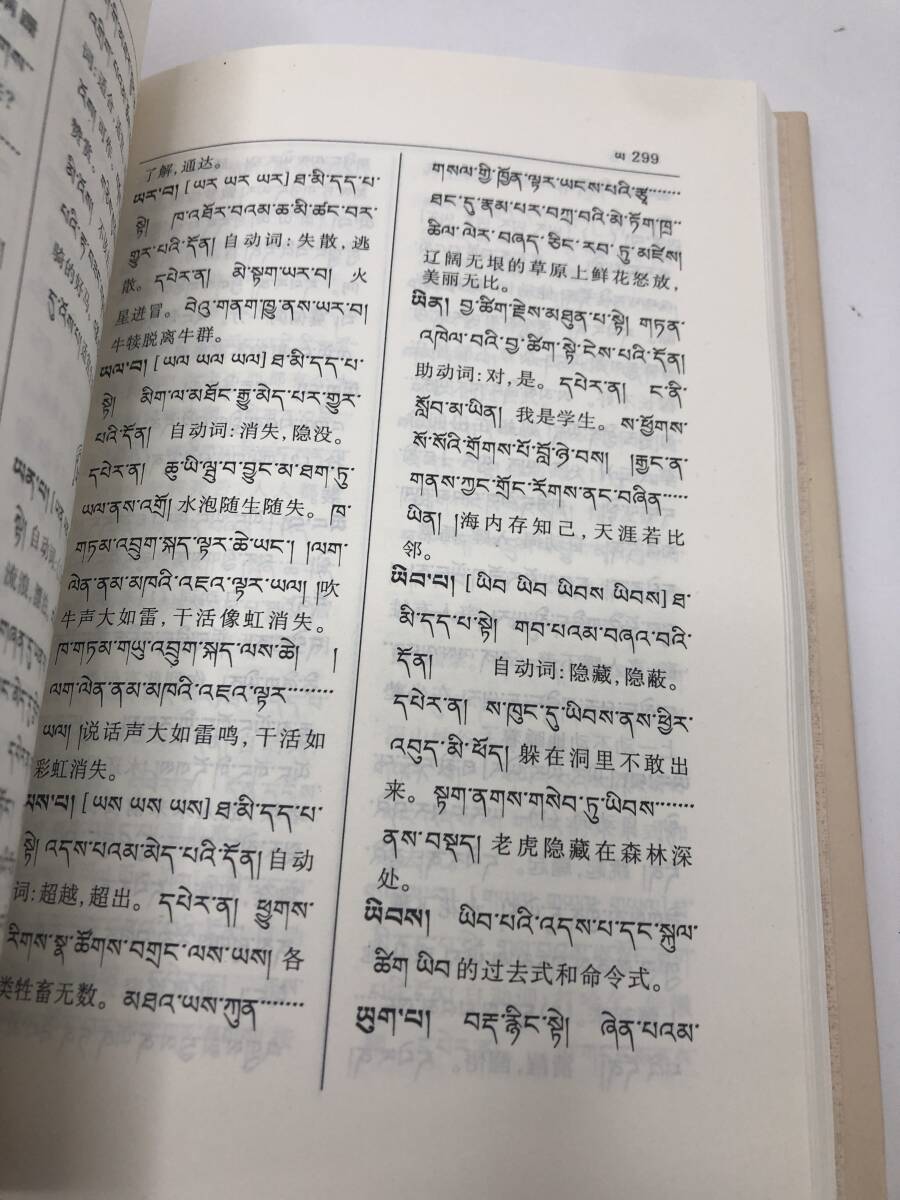 ཡ 299
了解,通达。
ཡར་བ། [ཡར ཡར ཡར] ཐ་མི་དད་པ་
སྟེ། ཁ་འཐོར་བའམ་ཆ་མི་ཚང་བར་
གྱུར་པའི་དོན། 自动词:失散,逃
散。 དཔེར་ན། མེ་སྟག་ཡར་བ། 火
星迸冒。 བེའུ་གནག་ཁྱུ་ནས་ཡར་བ།
牛犊脱离牛群。
ཡལ་བ། [ཡལ ཡལ ཡལ] ཐ་མི་དད་པ་
སྟེ། མིག་ལ་མཐོང་རྒྱུ་མེད་པར་གྱུར་
པའི་དོན། 自动词:消失,隐没。
དཔེར་ན། ཆུ་ཡི་ལྦུ་བ་བྱུང་མ་ཐག་ཏུ་
ཡལ་ནས་འགྲོ། 水泡随生随失。 ཁ་
གཏམ་འབྲུག་སྐད་ལྟར་ཆེ་ཡང་། །ལག་
ལེན་ནམ་མཁའི་འཇའ་ལྟར་ཡལ། །吹
牛声大如雷,干活像虹消失。
ཁ་གཏམ་གཡུ་འབྲུག་སྐད་ལས་ཆེ། །
ལག་ལེན་ནམ་མཁའི་འཇའ་ལྟར········
ཡལ། །说话声大如雷鸣,干活如
彩虹消失。
ཡས་པ། [ཡས ཡས ཡས] ཐ་མི་དད་པ་
སྟེ། འདས་པའམ་མེད་པའི་དོན། 自动
词:超越,超出。 དཔེར་ན། ཕྱུགས་
རིགས་སྣ་ཚོགས་བགྲང་ལས་ཡས། 各
类牲畜无数。 མཐའ་ཡས་ཀུན·······
གསལ་གྱི་ཁྱོན་ལྟར་ཡངས་པའི་རྩྭ·······
ཐང་དུ་རྣམ་པར་བཀྲ་བའི་མེ་ཏོག་ཁྲ··
ཆིལ་ལེར་བཞད་ཅིང་རབ་ཏུ་མཛེས།
辽阔无垠的草原上鲜花怒放,
美丽无比。
ཡིན། བྱ་ཚིག་རྗེས་མཐུན་པ་སྟེ། གཏན་
འཁེལ་བའི་བྱ་ཚིག་སྟེ་ངེས་པའི་དོན།
助动词:对,是。 དཔེར་ན། ང་ནི་
སློབ་མ་ཡིན། 我是学生。 ས་ཕྱོགས་
སོ་སོའི་གྲོགས་པོ་བློ་ཉེ་བས། །རྒྱང་ན་
གནས་ཀྱང་གྲོང་རོགས་ནང་བཞིན·····
ཡིན། །海内存知己,天涯若比
邻。
ཡིབ་པ། [ཡིབ ཡིབ ཡིབས ཡིབས] ཐ་
མི་དད་པ་སྟེ། གབ་པའམ་བཞའ་བའི་
དོན། 自动词:隐藏,隐蔽。
དཔེར་ན། ས་ཁུང་དུ་ཡིབས་ནས་ཕྱིར་
འབུད་མི་ཕོད། 躲在洞里不敢出
来。 སྟག་ནགས་གསེབ་ཏུ་ཡིབས·······
ནས་བསྡད། 老虎隐藏在森林深
处。
ཡིབས། ཡིབ་པའི་འདས་པ་དང་སྐུལ་
ཚིག ཡིབ 的过去式和命令式。
ཡུག་པ། བརྡ་རྙིང་སྟེ། ཞེན་པའམ་